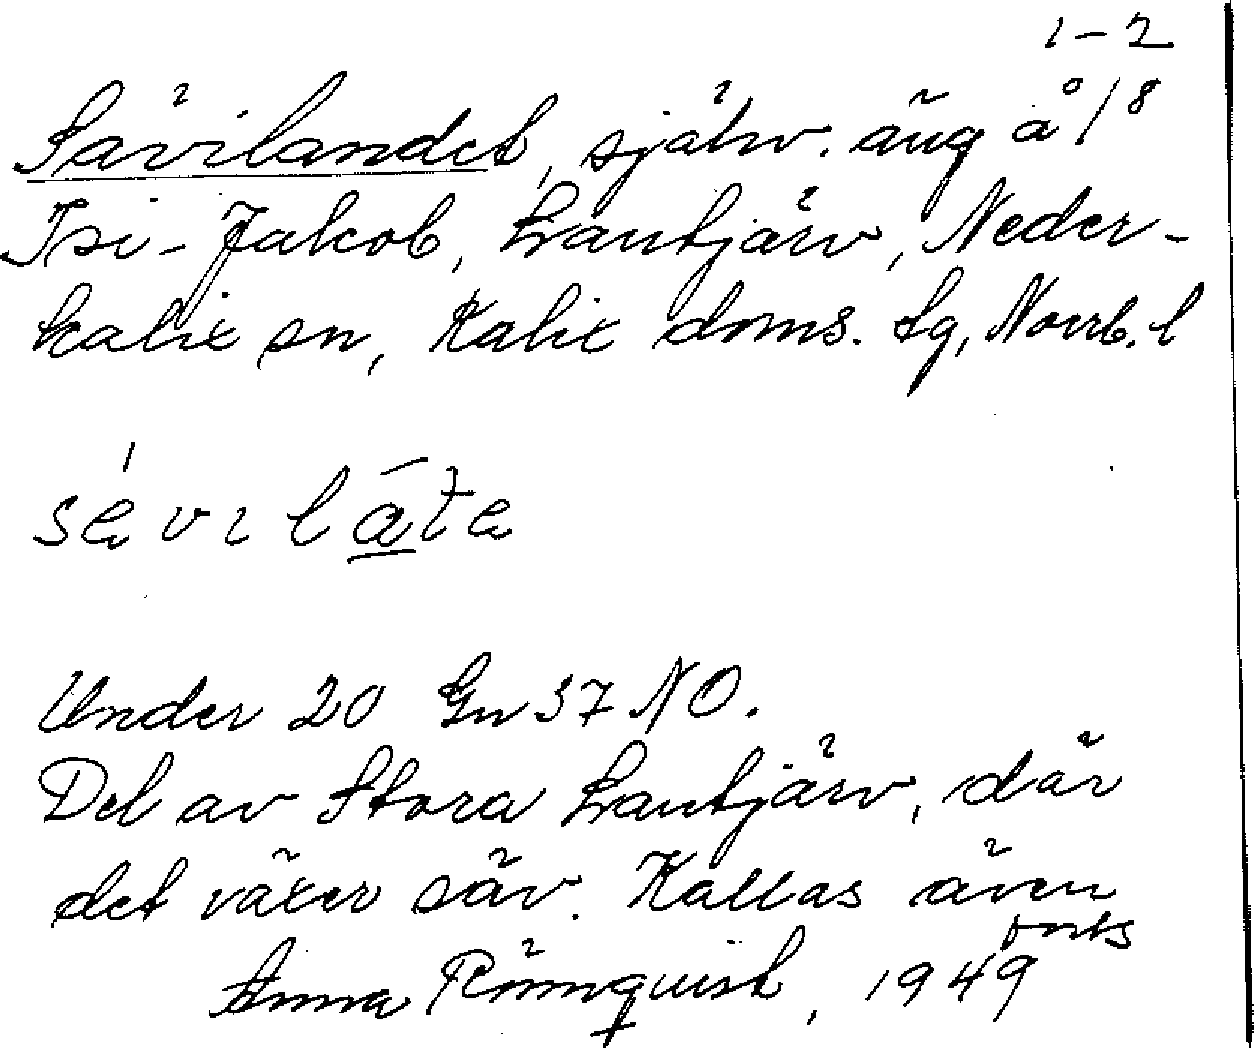 1-2
Sävilandet, själv. äng å 1/8
Isi-Jakob, Lantjärv, Neder-
kalix sn, Kalix doms. lg, Norrb. l
Under 20 Gn 37 NO.
Del av Stora Lantjärv, där
det växer säv. Kallas även
forts
Anna Rönnquist, 1949